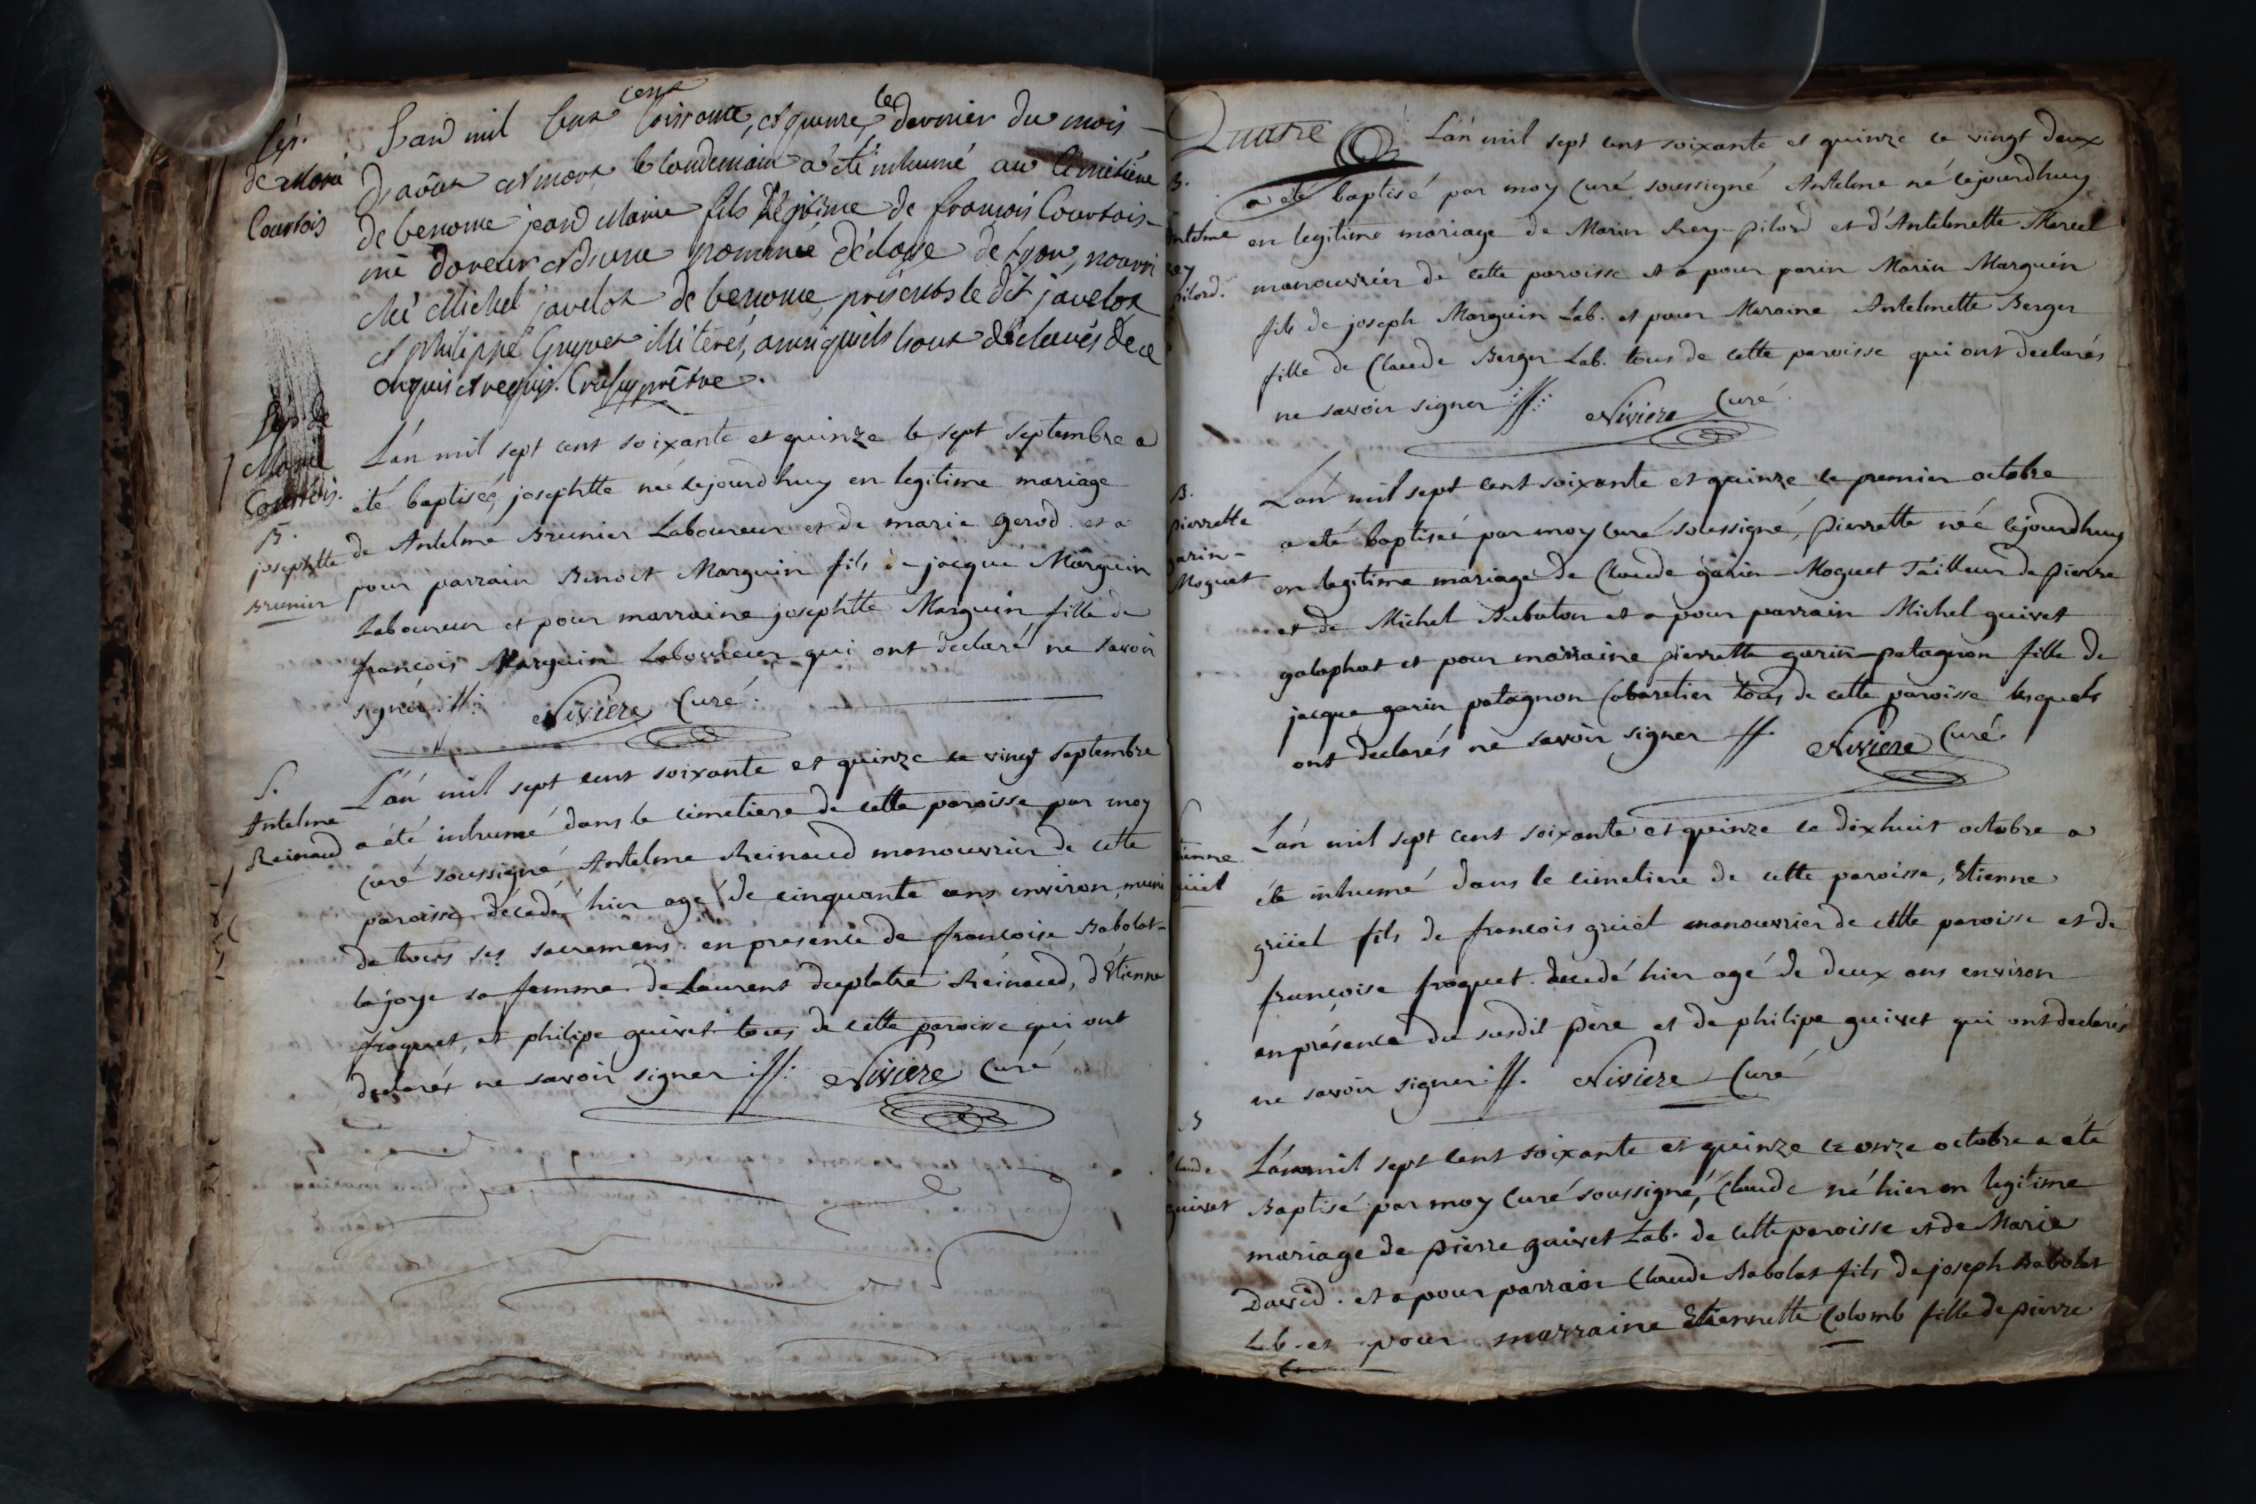 Sép.
de Marie
Courtois
L'an mil sept cent soixante, et quinze, le dernier du mois
D'aoust et mort le lendemain a été inhumé au Cimetière
de benome jean Marie fils de françois Courtois
et d'une nommée de Lyon, nourri
chés Michel javelot de benome, présents le dit javelot
et philippe Guyvet illiterés, ainsi qu'ils l'ont déclarés de ce
enquis et requis. prêtre.
Sép. de
Marie
Courtois.
B.
josephtte
Brunier
L'án mil sept cent soixante et quinze le sept septembre a
été baptisée, josephtte née cejourdhuy en legitime mariage
de Antelme Brunier Laboureur et de marie gerod. et a
pour parrain Benoit Marguin fils de jacque Marguin
Laboureur et pour marraine josephtte Marguin fille de
françois Marguin Laboureur qui ont declaré ne savoir
signer .//: Niviere Curé.
S.
Antelme
Reinaud
L'án mil sept cent soixante et quinze ce vingt septembre
a été inhumé dans le cimetiere de cette paroisse par moy
Curé soussigné, Antelme Reinaud manouvrier de cette
paroisse décedé hier agé de cinquante ans environ, muni
de tous ses sacremens. en presence de françoise Babolat-
lajoye sa femme de Laurent duplatre Réinaud, d'Etienne
froquet, et philipe guivet tous de cette paroisse qui ont
declarés ne savoir signer .//: Niviere Curé
Quatre
B.
Antelme
Rey
pilord.
L'án mil sept cent soixante et quinze ce vingt deux
a été baptisé par moy Curé soussigné Antelme né cejourdhuy
en legitime mariage de Marin Rey-pilord et d'Antelmette Marcel
manouvrier de cette paroisse et a pour parin Marin Marguin
fils de joseph Marguin Lab. et pour Maraine Antelmette Berger
fille de Claude Berger Lab. tous de cette paroisse qui ont declarés
ne savoir signer .//: Niviere Curé
B.
pierrette
garin-
Moquet
L'án mil sept cent soixante et quinze ce premier octobre
a eté baptisée par moy Curé soussigné, pierrette née cejourdhuy
en legitime mariage de Claude garin-Moquet Tailleur de pierre
et de Michel Bubaton et a pour parrain Michel guivet
galaphat et pour marraine pierrette garin-patagnon fille de
jacque garin patagnon Cabaretier tous de cette paroisse lesquels
ont declarés ne savoir signer //. Niviere Curé.
Etienne
grüel
L'án mil sept cent soixante et quinze ce dixhuit octobre a
été inhumé dans le cimetiere de cette paroisse, Etienne
grüel fils de françois grüel manouvrier de cette paroisse et de
françoise froquet. decedé hier agé de deux ans environ
en présence du susdit père et de philipe guivet qui ont declarés
ne savoir signer .//. Niviere Curé
B
Claude
guivet
L'án mil sept cent soixante et quinze ce onze octobre a été
Baptisé par moy Curé soussigné, Claude né hier en legitime
mariage de pierre guivet Lab. de cette paroisse et de Marie
David. et a pour parrain Claude Babolat fils de joseph Babolat
Lb. et pour marraine Etiennette Colomb fille de pierre